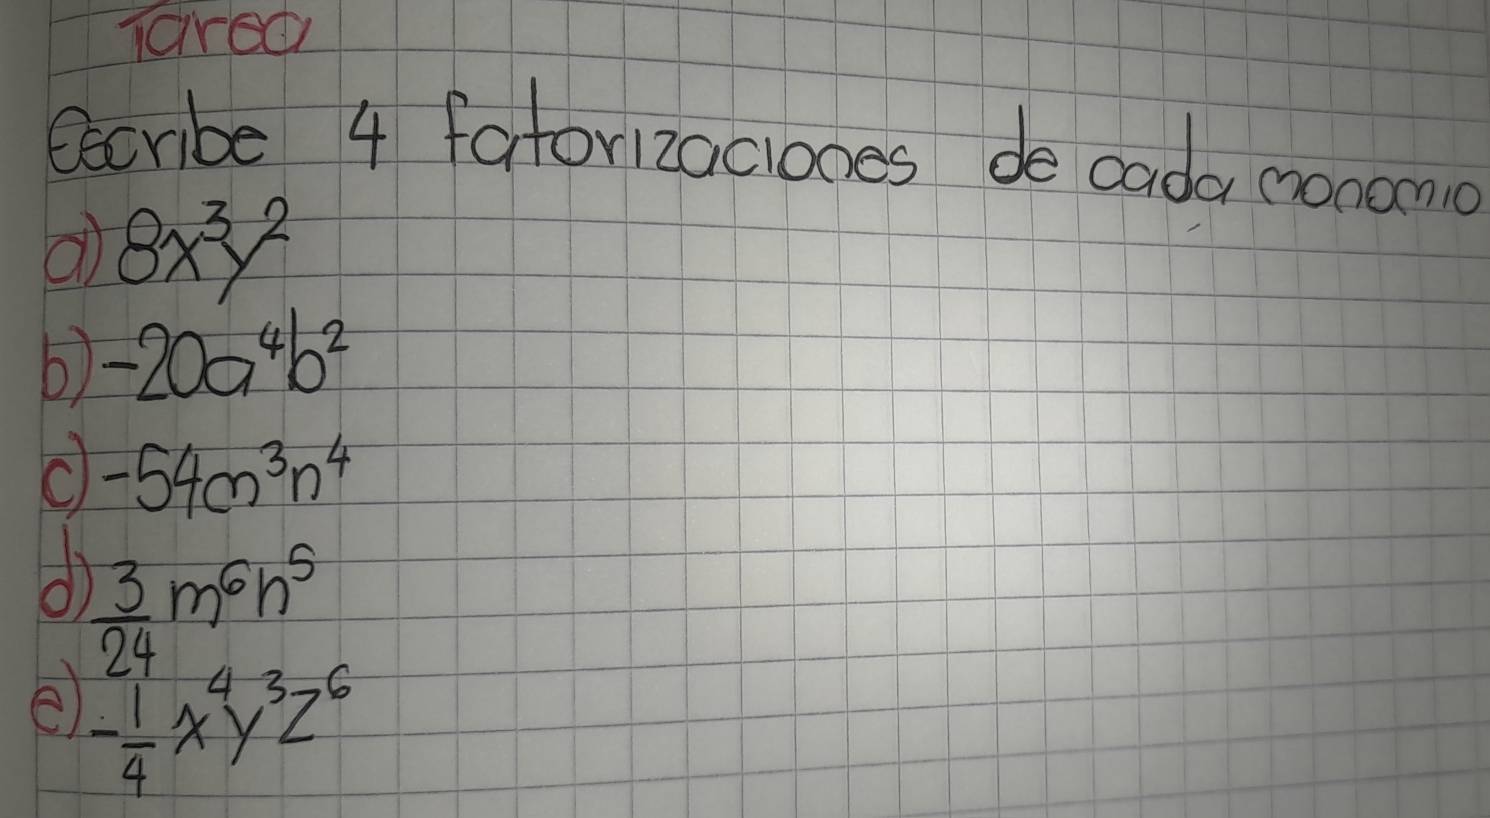 Tarea
Escribe 4 fatorizaciones de cada monomio
a) 8x³y²
b) -20a⁴b²
c) -54m³n⁴
d) 3/24 m⁶n⁵
e) -1/4 x⁴y³z⁶